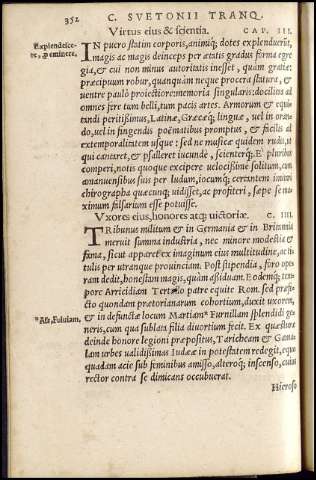 352 C. SVETONII TRANQ.
Virtus eius & scientia. CAP. III.
Explendesce-
re, p eminere.
IN puero statim corporis, animíq; dotes explenduerũt,
magis ac magis deinceps per ætatis gradus forma egre
gia, & cui non minus autoritatis inesset, quàm gratiæ:
præcipuum robur, quanquàm neque procera statura, &
uentre paulò proiectiore: memoria singularis: docilitas ad
omnes ferè tum belli, tum pacis artes. Armorum & equi-
tandi peritissimus, Latinæ, Græcæq́; linguæ, uel in orando
do, uel in fingendis poëmatibus promptus, & facilis ad
extemporalitatem usque: sed ne musicæ quidem rudis, ut
qui caneret, & psalleret iucundè, scienterq́;. E' pluribus
comperi, notis quoque excipere uelocissimè solitum, cum
amanuensibus suis per ludum, iocumq́; certantem imitari
chirographa quæcunq; uidisset, ac profiteri, sæpe se ma-
ximum falsarium esse potuisse.
Vxores eius, honores atq; uictoriæ. C. IIII.
TRibunus militum & in Germania & in Britannia
meruit summa industria, nec minore modestia &
fama, sicut apparet ex imaginum eius multitudine, ac ti-
tulis per utranque prouinciam. Post stipendia, foro ope-
ram dedit, honestam magis, quàm assiduam. Eodemq́; tem
pore Arricidiam Tertullo patre equite Rom. sed præfe-
cto quondam prætorianarum cohortium, duxit uxorem,
* Als, Fuluiam.
& in defunctæ locum Martiam* Furnillam splendidi ge-
neris, cum qua sublata filia diuortium fecit. Ex quæstura
deinde honore legioni præpositus, Taricheam & Gama-
lam urbes ualidissimas Iudææ in potestatem redegit, equo
quadam acie sub feminibus amisso, alteroq́; inscenso, cuius
rector contra se dimicans occubuerat.
Hieroso